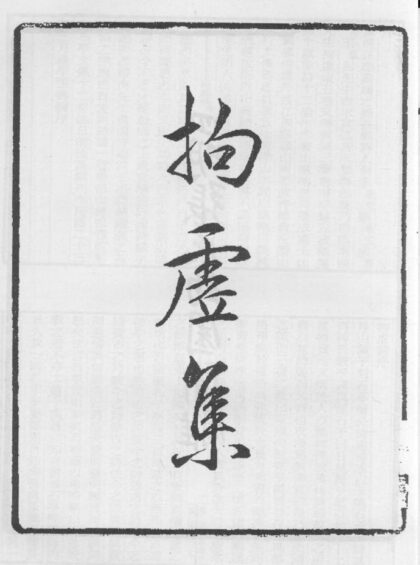 拘虛集